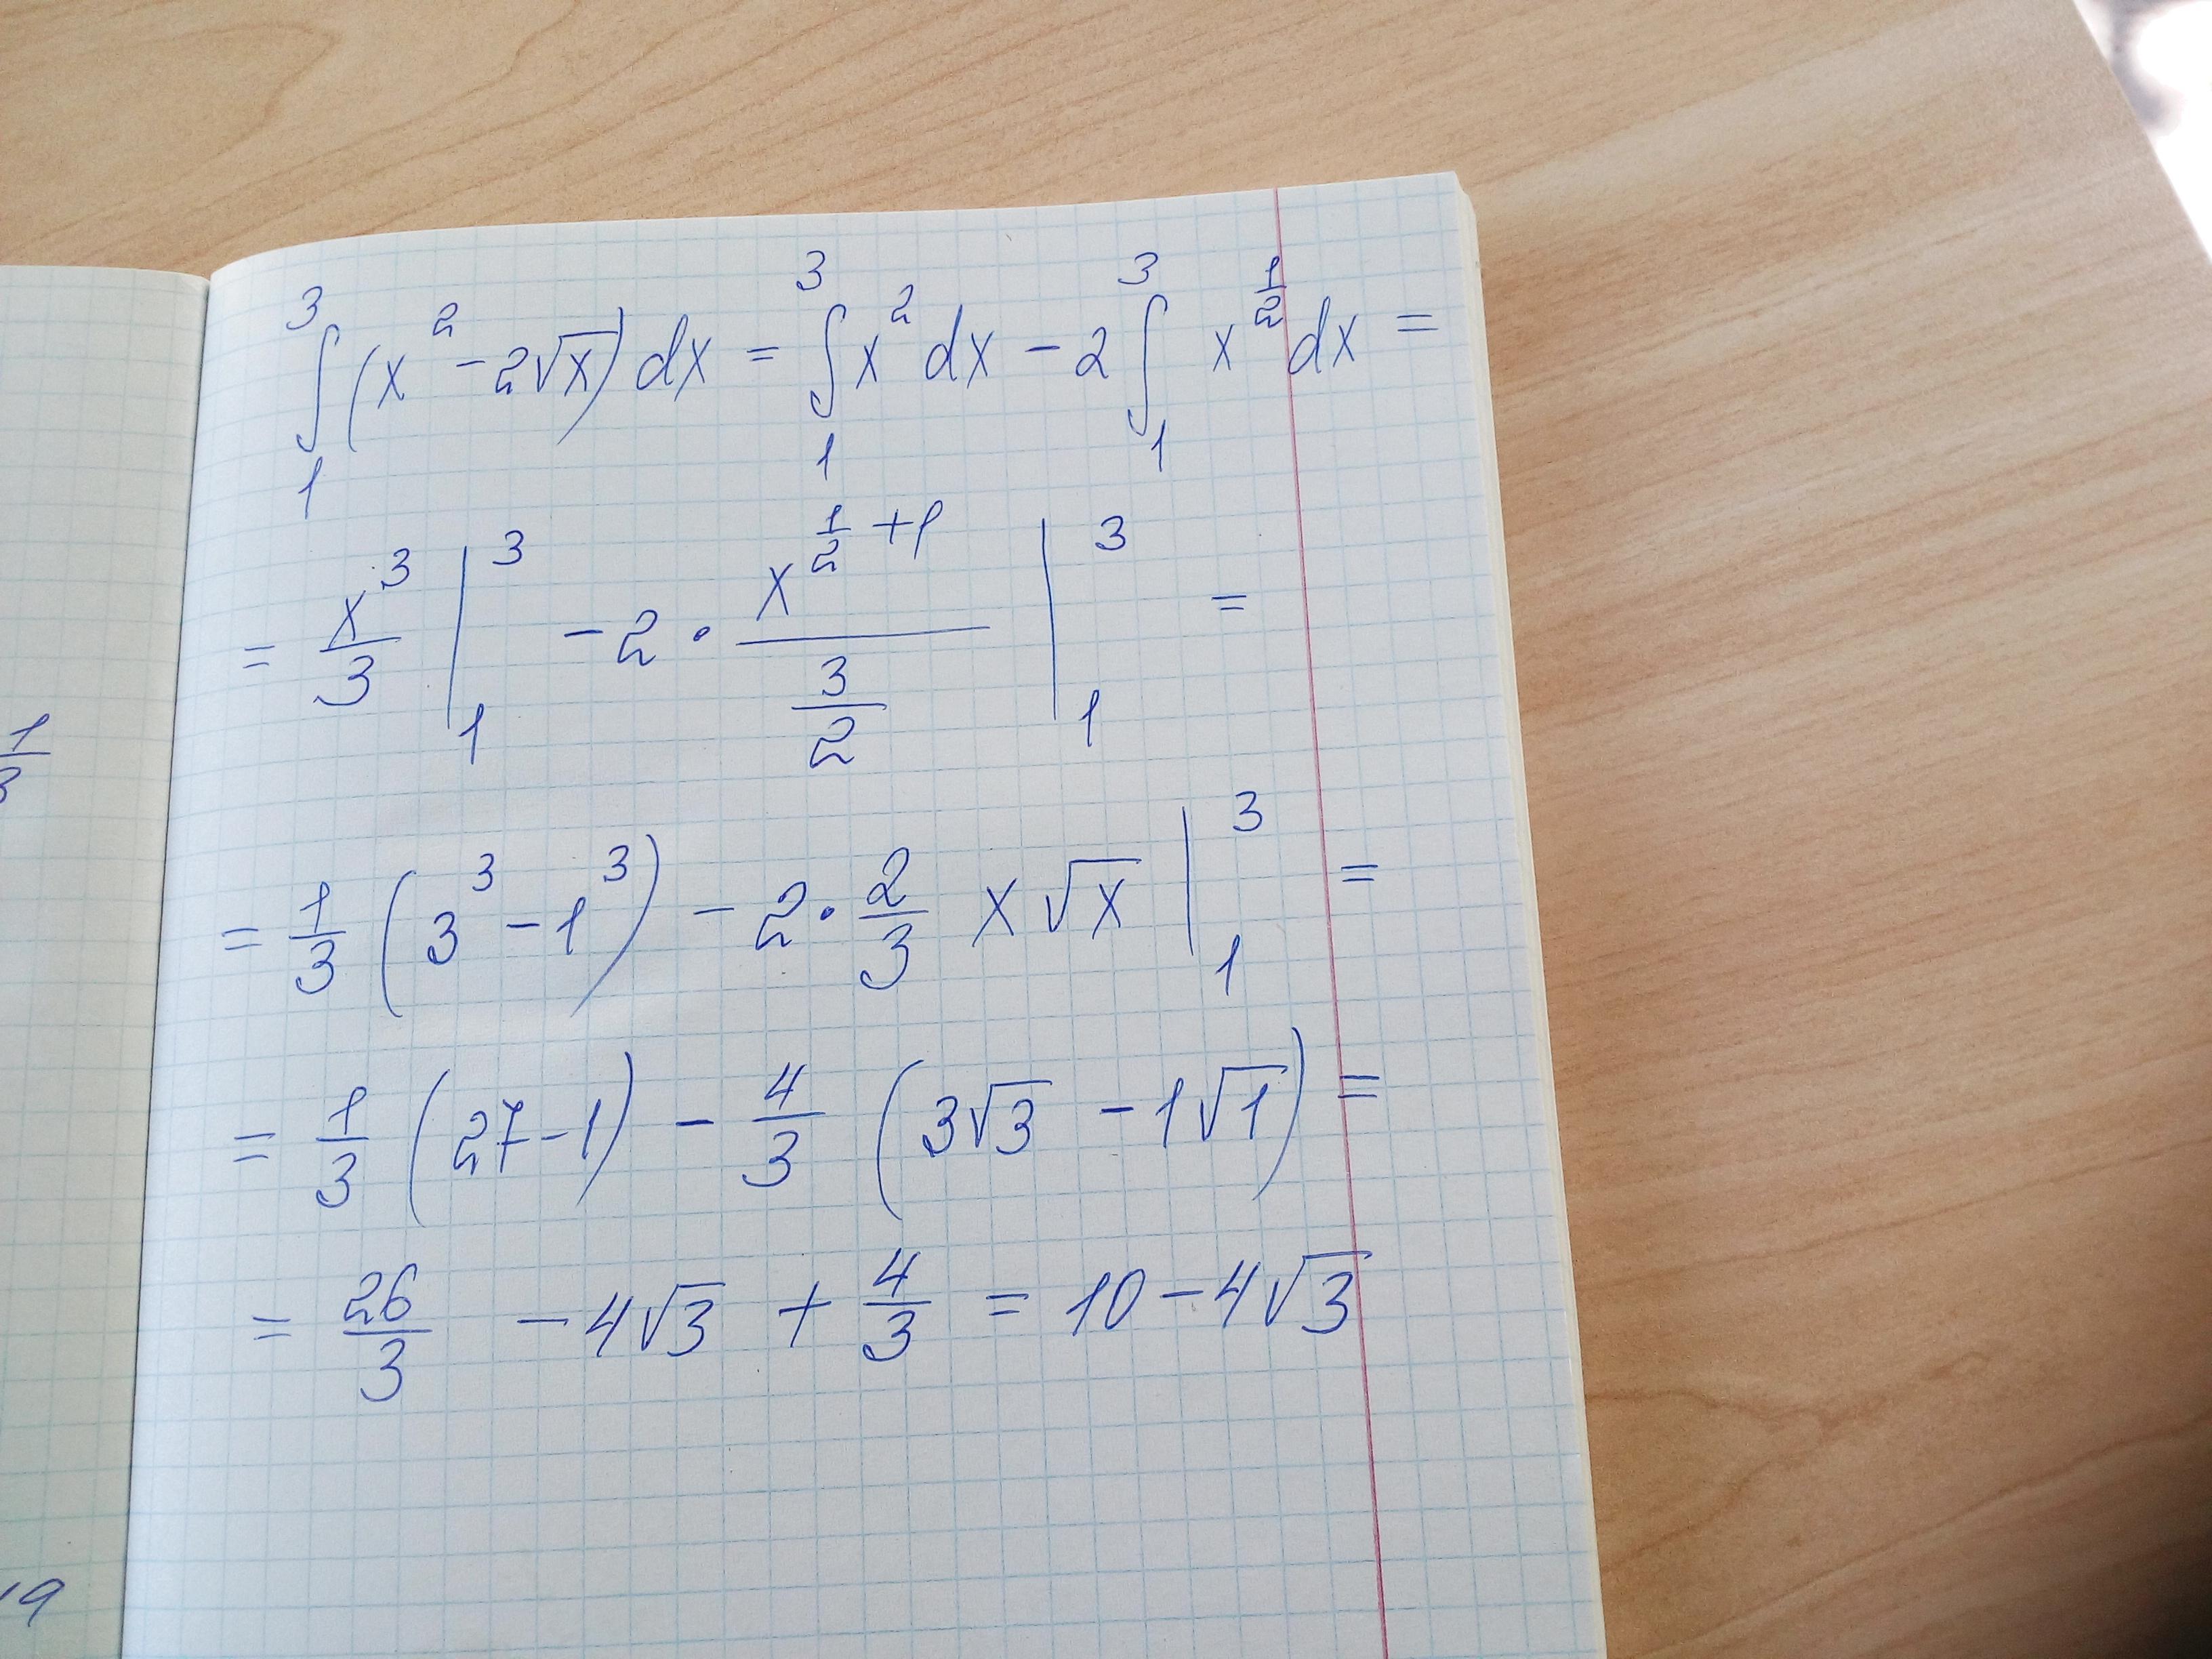 ∫₁³ (x² - 2√x) dx = ∫₁³ x² dx - 2 ∫₁³ x^(1/2) dx =
= x³/3 |₁³ - 2 · x^(1/2 + 1) / (3/2) |₁³ =
= 1/3 (3³ - 1³) - 2 · 2/3 x√x |₁³ =
= 1/3 (27 - 1) - 4/3 (3√3 - 1√1) =
= 26/3 - 4√3 + 4/3 = 10 - 4√3